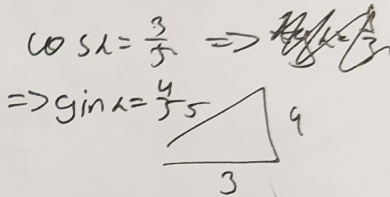 cos α = 3/5 =>
=> sin α = 4/5 5
4
3